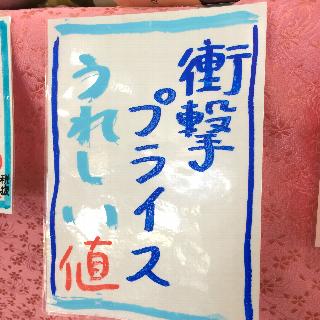 衝撃
プライス
うれしい値
税抜